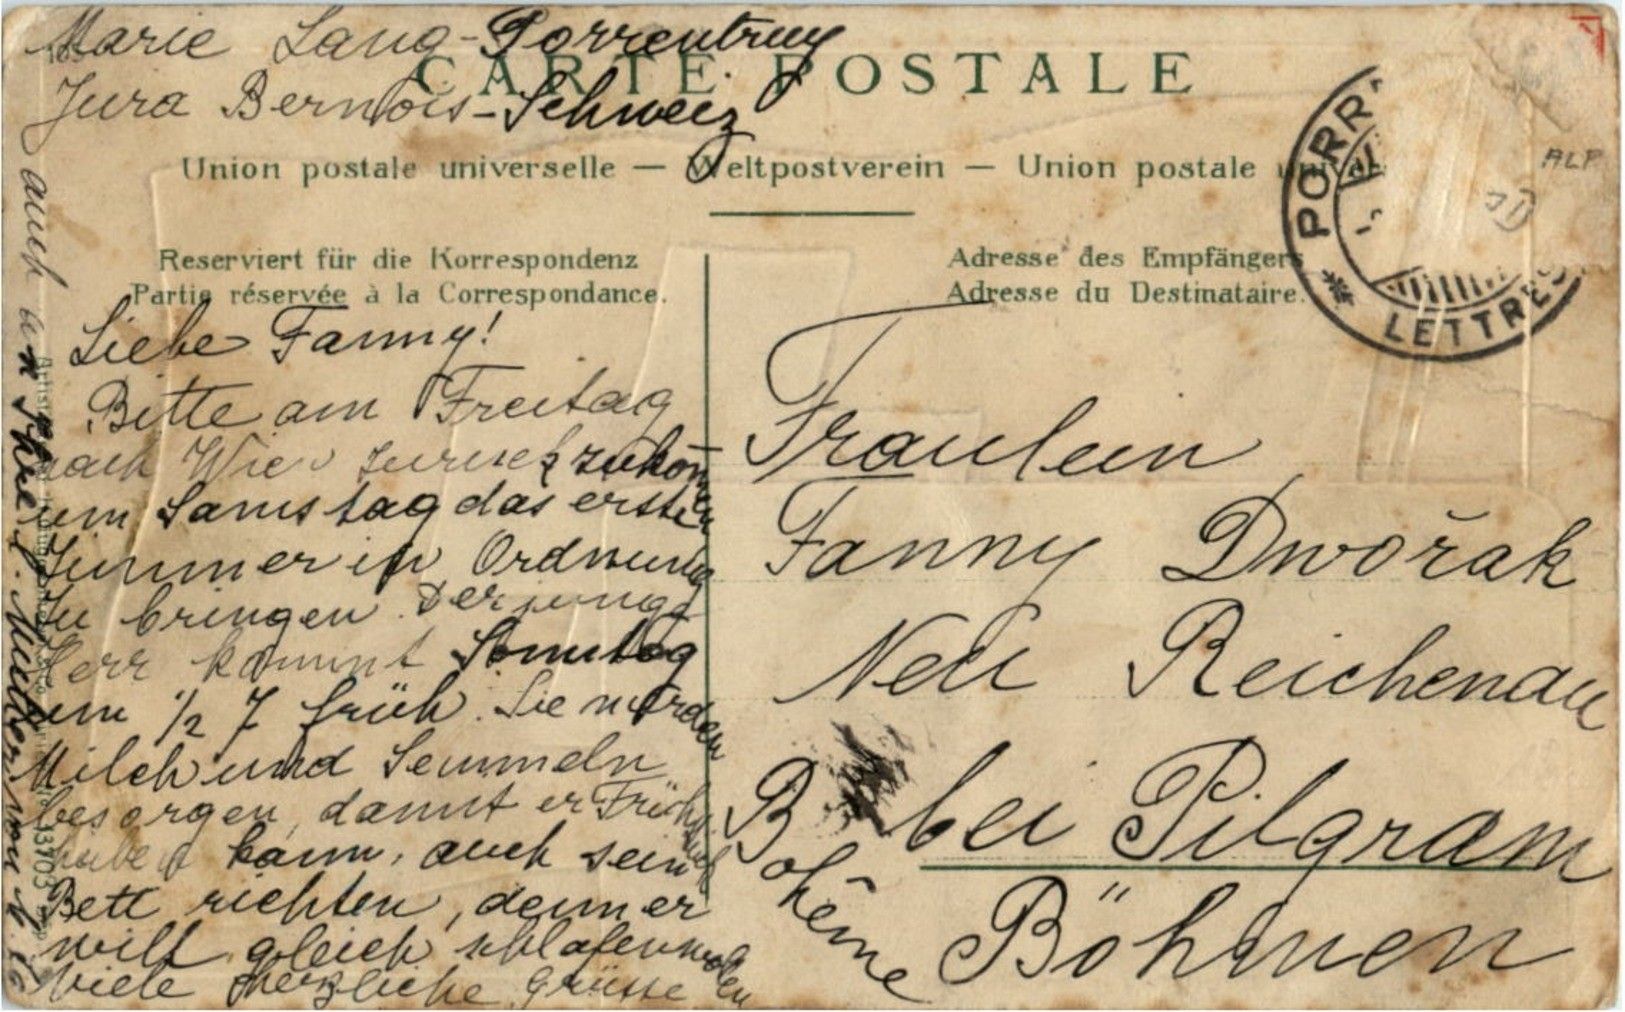 Marie Lang-Porrentruy
Jura Bernois-Schweiz
CARTE POSTALE
Union postale universelle — Weltpostverein — Union postale
Reserviert für die Korrespondenz
Partie réservée à la Correspondance.
Adresse des Empfängers
Adresse du Destinataire.
LETTRES
ALP
Liebe Fanny!
Bitte am Freitag
nach Wien zurückzukommen
um Samstag das erste
Zimmer in Ordnung
zu bringen. Der junge
Herr kommt Sonntag
um 1/2 7 früh. Sie werden
Milch und Semmeln
besorgen, damit er Früh
haben kann, auch sein
Bett richten, denn er
will gleich schlafen
Viele herzliche Grüsse
auch an Ihre Mutter von
Fräulein
Fanny Dwořak
Neu Reichenau
bei Pilgram
Böhmen
Bohême